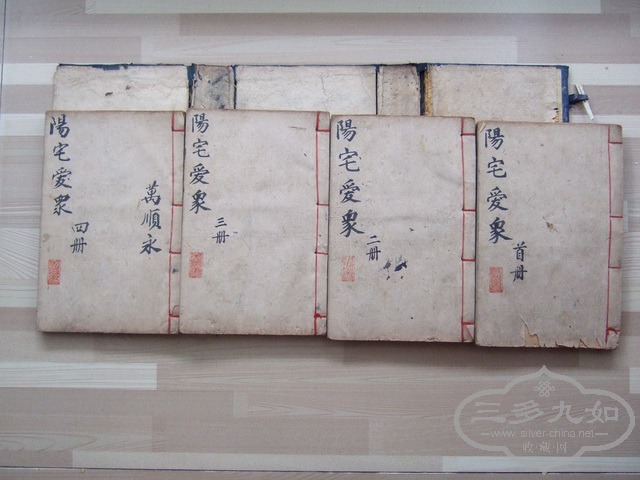 陽宅愛衆
首册
陽宅愛衆
二册
陽宅愛衆
三册
陽宅愛衆
四册
萬順永
三多九如
www.silver-china.net
收藏网